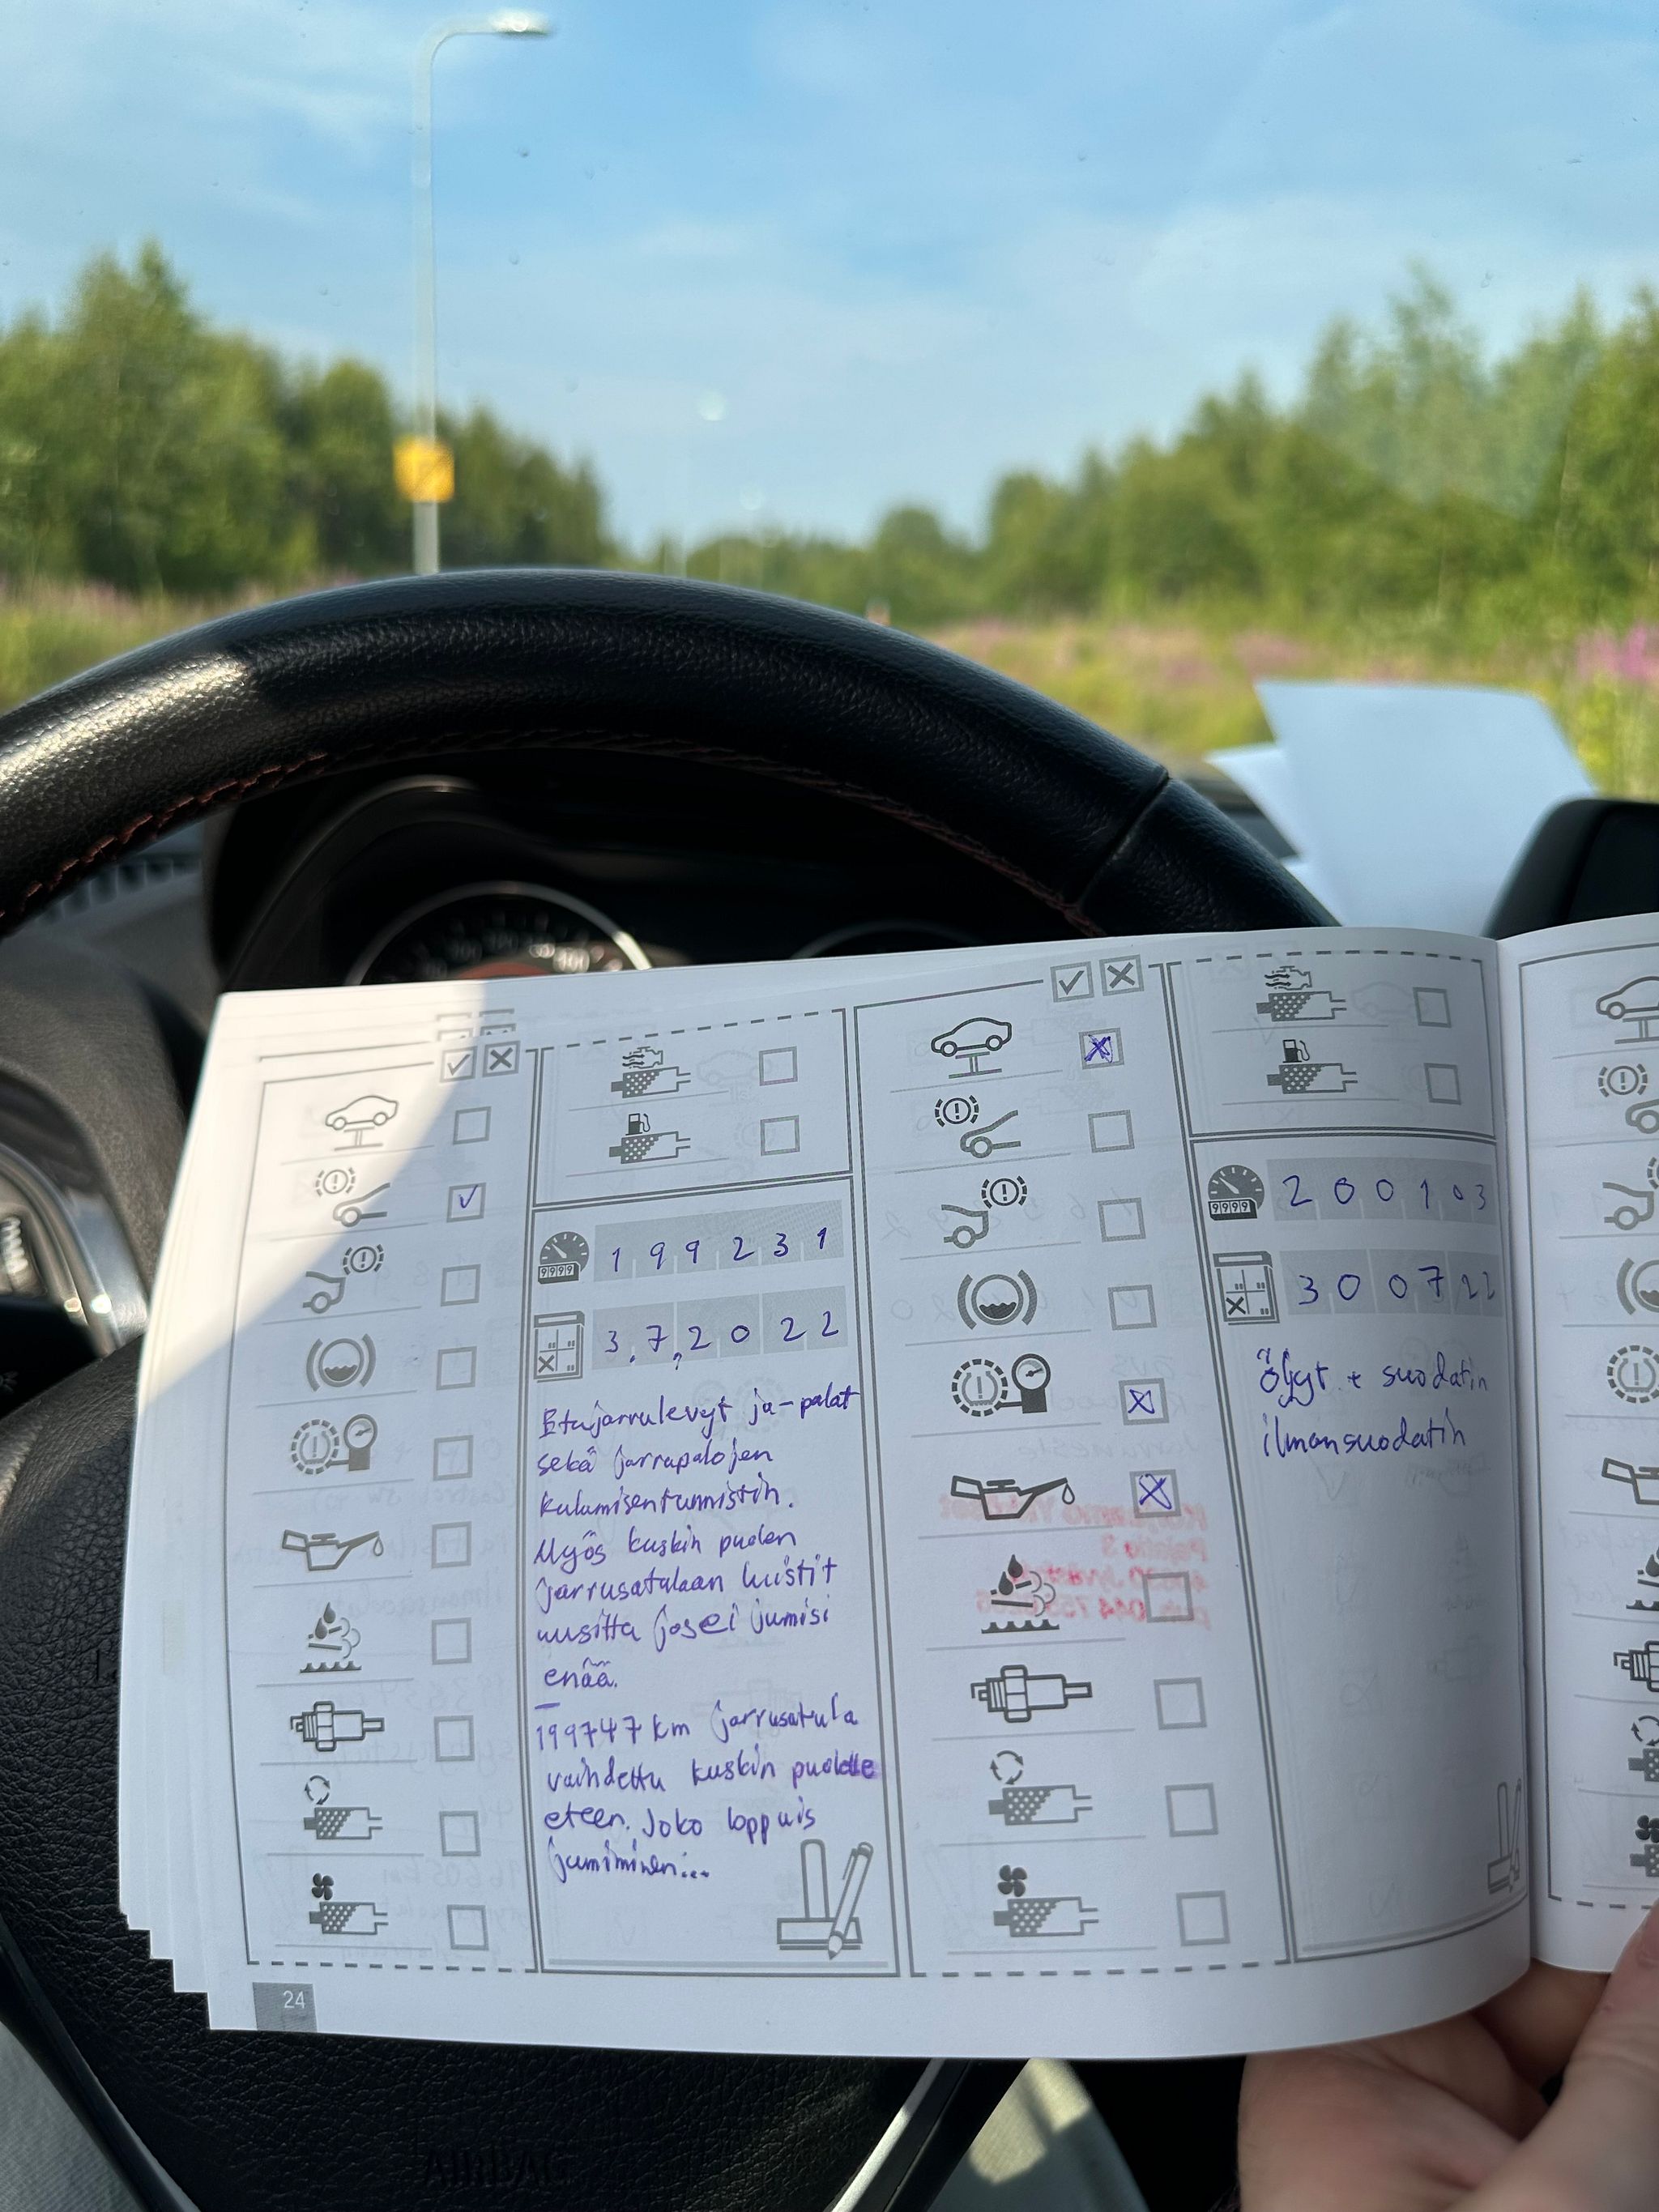 199231
3.7.2022
Etujarrulevyt ja -palat
sekä jarrupalojen
kulumisentunnistin.
Myös kuskin puolen
jarrusatulaan luistit
uusittu jos ei jumisi
enää.
199747 km jarrusatula
vaihdettu kuskin puolelle
eteen. Joko loppuis
jumiminen...
24
200103
300722
Öljyt + suodatin
ilmansuodatin
AIRBAG